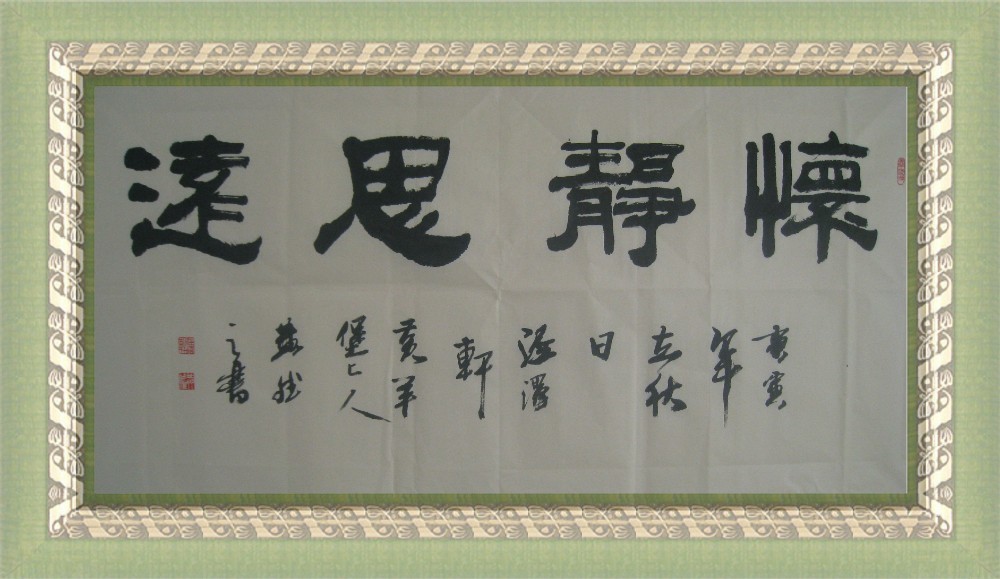 懷靜思遠
庚寅
年
立秋
日
軒
黃羊
堡上人
之書